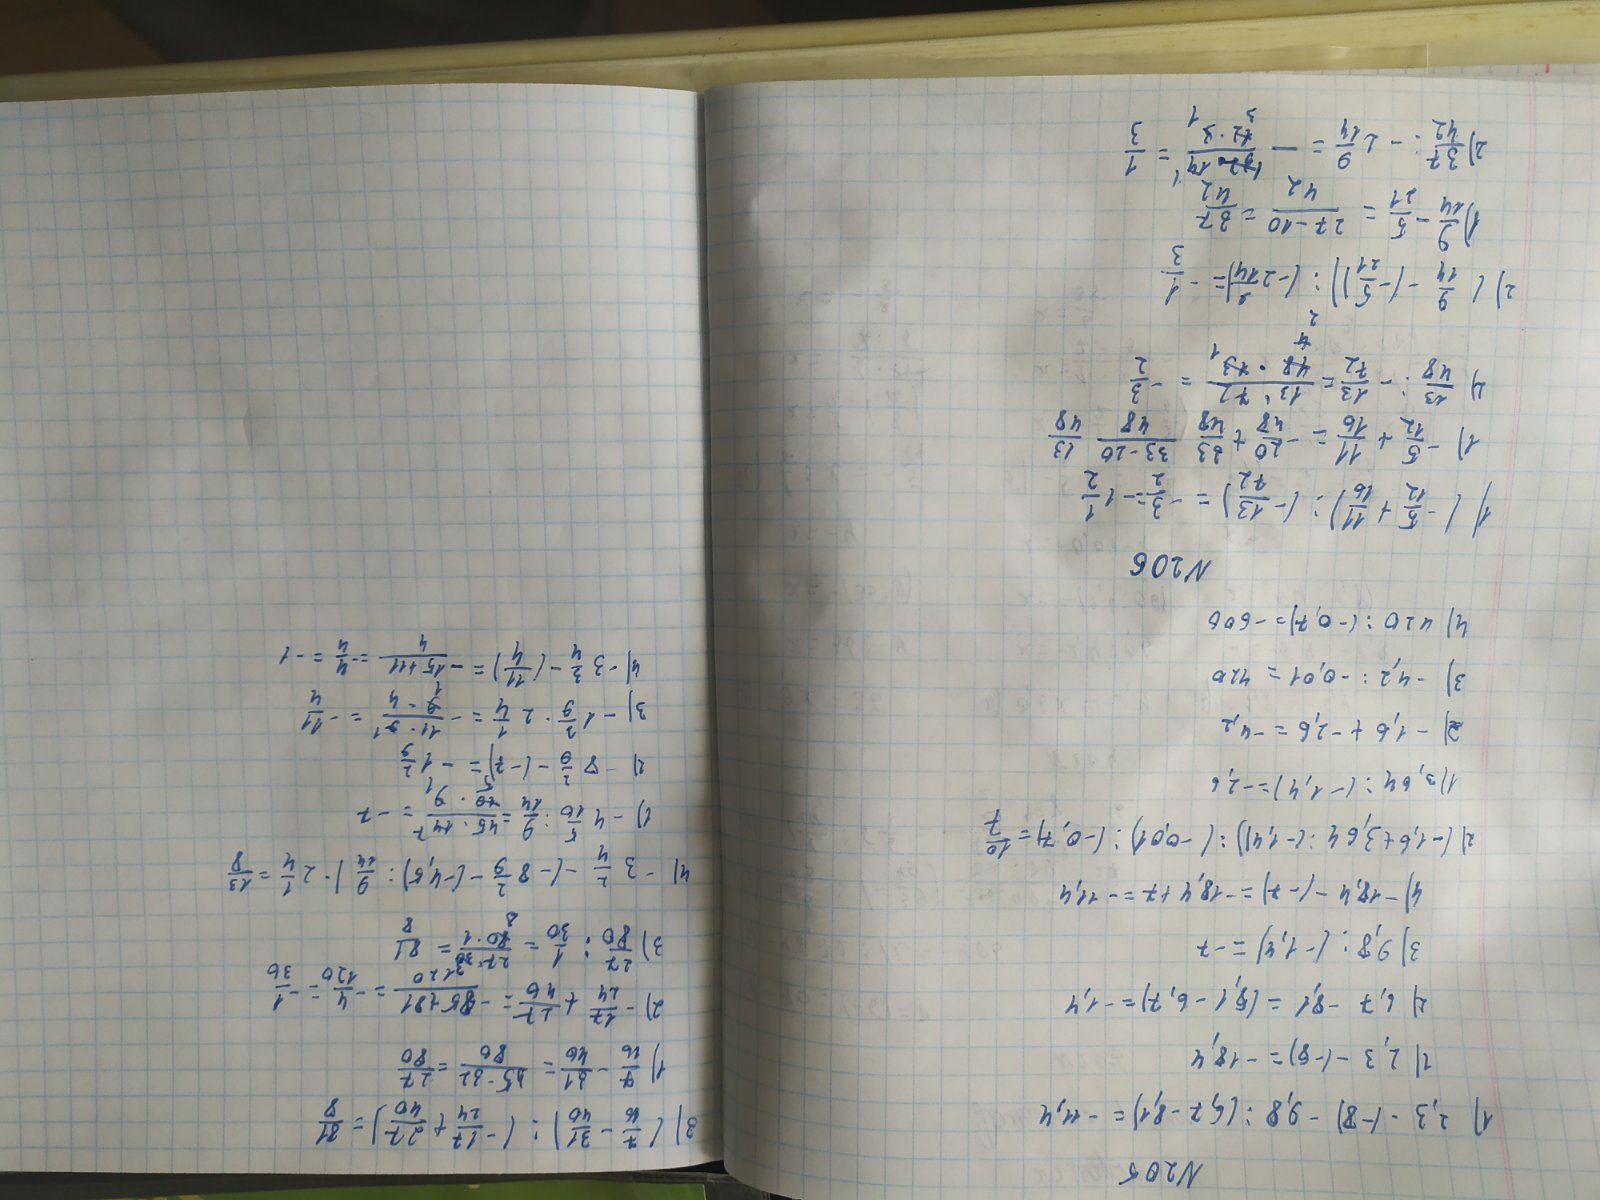 N205
1) 2,3 · (-8) - 9,8 : (6,7 - 8,1) = -11,4
1) 2,3 · (-8) = -18,4
2) 6,7 - 8,1 = (8,1 - 6,7) = -1,4
3) 9,8 : (-1,4) = -7
4) -18,4 - (-7) = -18,4 + 7 = -11,4
2) (-1,6 + 3,64 : (-1,4)) : (-0,01) : (-0,7) = 10/7
1) 3,64 : (-1,4) = -2,6
2) -1,6 + -2,6 = -4,2
3) -4,2 : -0,01 = 420
4) 420 : (-0,7) = -600
N206
1) (-5/12 + 11/16) : (-13/72) = -3/2 = -1 1/2
1) -5/12 + 11/16 = -20/48 + 33/48 33-20/48 13/48
2) 13/48 : -13/72 = 13·72/48·13 = -3/2
2) (9/14 - (-5/21)) : (-2 9/14) = -1/3
1) 9/14 - 5/21 = 27-10/42 = 37/42
2) 37/42 : -2 9/14 = 1/3
3) (7/16 - 31/40) : (-17/24 + 27/40) = 81/8
1) 7/16 - 31/40 = 27/80
2) -17/24 + 27/40 = -85+81/120 = -4/120 = -1/30
3) 27/80 : 1/30 = 27·30/80·1 = 81/8
4) -3 3/4 - (-8 2/9 - (-4,5) : 9/14) · 2 1/4 = 13/8
1) -4 5/10 : 9/14 = 45·14/10·9 = -7
2) -8 2/9 - (-7) = -1 2/9
3) -1 2/9 · 2 1/4 = -11·9/9·4 = -11/4
4) -3 3/4 - (11/4) = -15+11/4 = -4/4 = -1